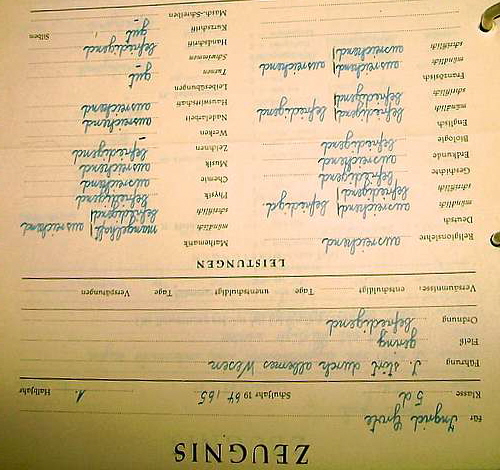 ZEUGNIS
für Ingrid Grote
Klasse 5d Schuljahr 19 64/65 1. Halbjahr
Führung J. stört durch albernes Wesen
Fleiß gering
Ordnung befriedigend
Versäumnisse: entschuldigt Tage unentschuldigt Tage Verspätungen
LEISTUNGEN
Religionslehre ausreichend
Deutsch
mündlich ausreichend befriedigd.
schriftlich befriedigend
Geschichte befriedigend
Erdkunde ausreichend
Biologie befriedigend
Englisch
mündlich befriedigend befriedigend
schriftlich befriedigend
Französisch
mündlich ausreichend ausreichend
schriftlich ausreichend
Mathematik mangelhaft
mündlich befriedigend ausreichend
schriftlich ausreichend
Physik ausreichend
Chemie ausreichend
Musik befriedigend
Zeichnen –
Werken ausreichend
Nadelarbeit ausreichend
Hauswirtschaft
Leibesübungen
Turnen gut
Schwimmen –
Handschrift befriedigend
Kurzschrift gut Silben
Masch-Schreiben